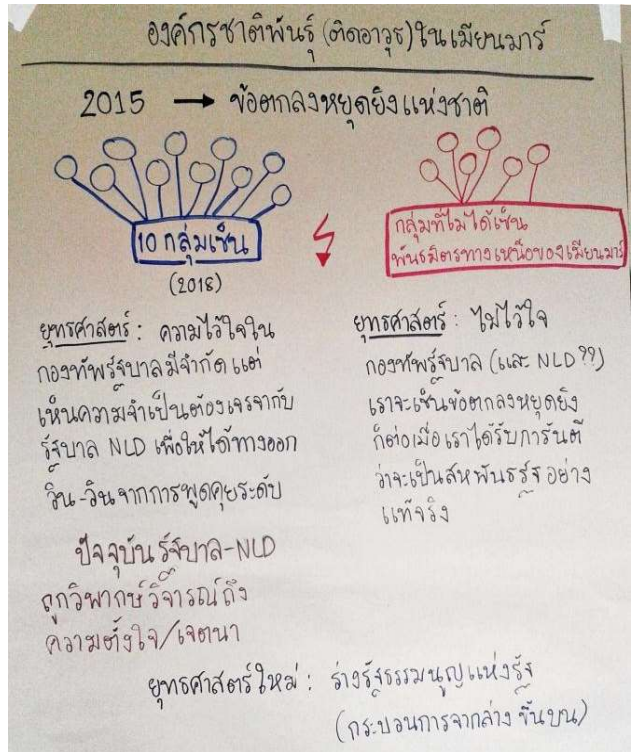 องค์กรชาติพันธุ์ (ติดอาวุธ) ในเมียนมาร์
2015 → ข้อตกลงหยุดยิงแห่งชาติ
10 กลุ่มเซ็น
(2018)
ยุทธศาสตร์ : ความไว้ใจใน
กองทัพรัฐบาลมีจำกัด แต่
เห็นความจำเป็นต้องเจรจากับ
รัฐบาล NLD เพื่อให้ได้ทางออก
วิน-วินจากการพูดคุยระดับ
ปัจจุบันรัฐบาล-NLD
ถูกวิพากษ์วิจารณ์ถึง
ความตั้งใจ/เจตนา
กลุ่มที่ไม่ได้เซ็น
พันธมิตรทางเหนือของเมียนมาร์
ยุทธศาสตร์ : ไม่ไว้ใจ
กองทัพรัฐบาล (และ NLD ??)
เราจะเซ็นข้อตกลงหยุดยิง
ก็ต่อเมื่อเราได้รับการันตี
ว่าจะเป็นสหพันธรัฐอย่าง
แท้จริง
ยุทธศาสตร์ใหม่ : ร่างรัฐธรรมนูญแห่งรัฐ
(กระบวนการจากล่าง ขึ้นบน)